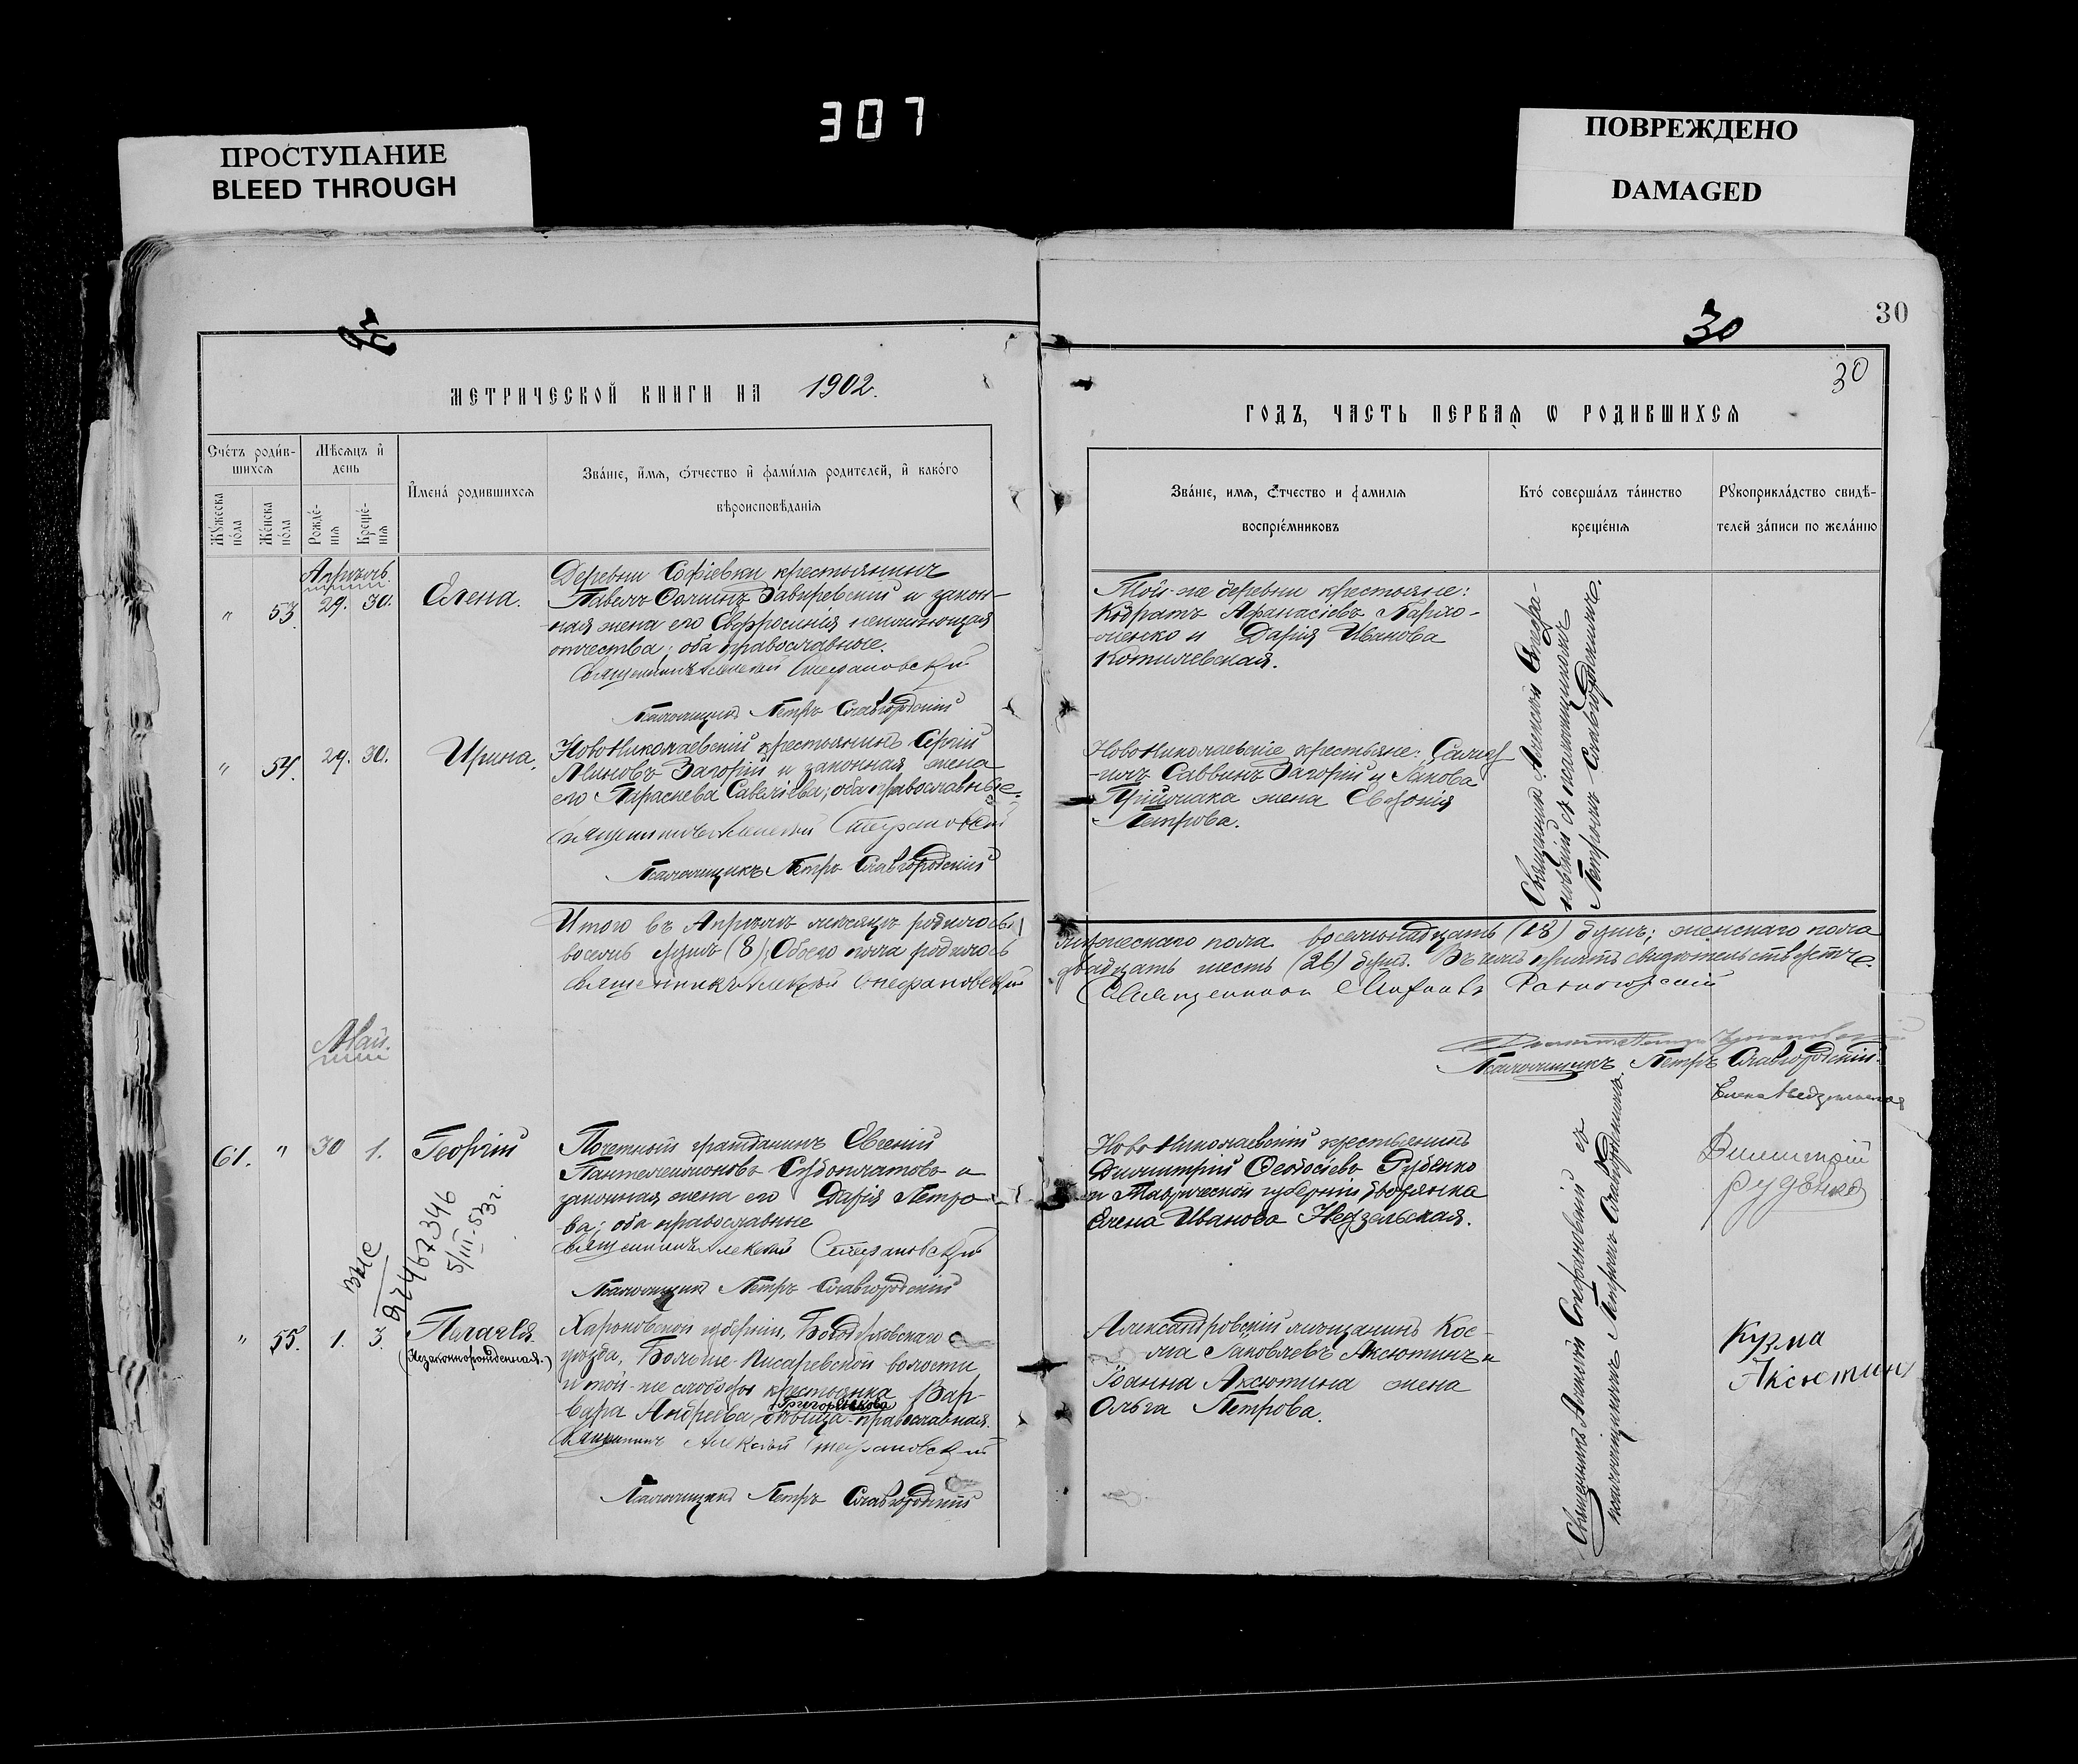 307
ПРОСТУПАНИЕ
BLEED THROUGH
ПОВРЕЖДЕНО
DAMAGED
30
30
30
МЕТРИЧЕСКОЙ КНИГИ НА 1902.
Счетъ родившихся
Мѣсяцъ и день
Имена родившихся
Званіе, имя, отчество и фамилія родителей, и какого
вѣроисповѣданія
Мужеска пола
Женска пола
Рожденія
Крещенія
Апрѣль
" 53. 29. 30. Елена.
Деревни Софіевки крестьянинъ
Павелъ
и закон-
ная жена его Евфросинія
отчества; оба православные.
Священникъ Алексій Стефановскій
Псаломщикъ Петръ Славгородскій
" 54. 29. 30. Ирина.
Новониколаевскій крестьянинъ Сергій
Загорій и законная жена
его Параскева Савеліева; оба православные.
Священникъ Алексій Стефановскій
Псаломщикъ Петръ Славгородскій
Итого въ Апрѣлѣ мѣсяцѣ родилось
восемь душъ (8); Обоего пола родилось
Священникъ Алексій Стефановскій
Май.
61. " 30 1. Георгій
Почетный гражданинъ Евгеній
Пантелеимоновъ Судоплатовъ и
законная жена его Дарія Петро-
ва; оба православные
Священникъ Алексій Стефановскій
Псаломщикъ Петръ Славгородскій
5/III-53г.
" 55. 1. 3. Пелагея
(Незаконнорожденная.)
Харьковской губерніи, Богодуховскаго
уѣзда, Больше-Писаревской волости
и той-же слободы крестьянка Вар-
вара Андреева Григорьикова дѣвица православная.
Священникъ Алексій Стефановскій
Псаломщикъ Петръ Славгородскій
ГОДЪ, ЧАСТЬ ПЕРВАЯ Ѡ РОДИВШИХСЯ
Званіе, имя, отчество и фамилія
воспріемниковъ
Кто совершалъ таинство
крещенія
Рукоприкладство свидѣ-
телей записи по желанію
Той-же деревни крестьяне:
Кодратъ Афанасіевъ
и Дарія Иванова
Котилевская.
Новониколаевскіе крестьяне:
Саввинъ Загорій и Іакова
жена Евфонія
Петрова.
Священникъ Алексій Стефа-
новскій съ псаломщикомъ
Петромъ Славгородскимъ.
мужескаго пола восемьнадцать (18) душъ; женскаго пола
двадцать шесть (26) душъ. Въ чемъ
Священникъ
Псаломщикъ Петръ Славгородскій.
Елена Недзельская
Новониколаевскій крестьянинъ
Димитрій Ѳеодосіевъ Руденко
и Таврической губерніи дворянка
Елена Иванова Недзельская.
Димитрій
Руденко
Александровскій мѣщанинъ Кос-
ма Іаковлевъ Аксютинъ и
Іоанна Аксютина жена
Ольга Петрова.
Священникъ Алексій Стефановскій съ
псаломщикомъ Петромъ Славгородскимъ.
Кузма
Аксютин